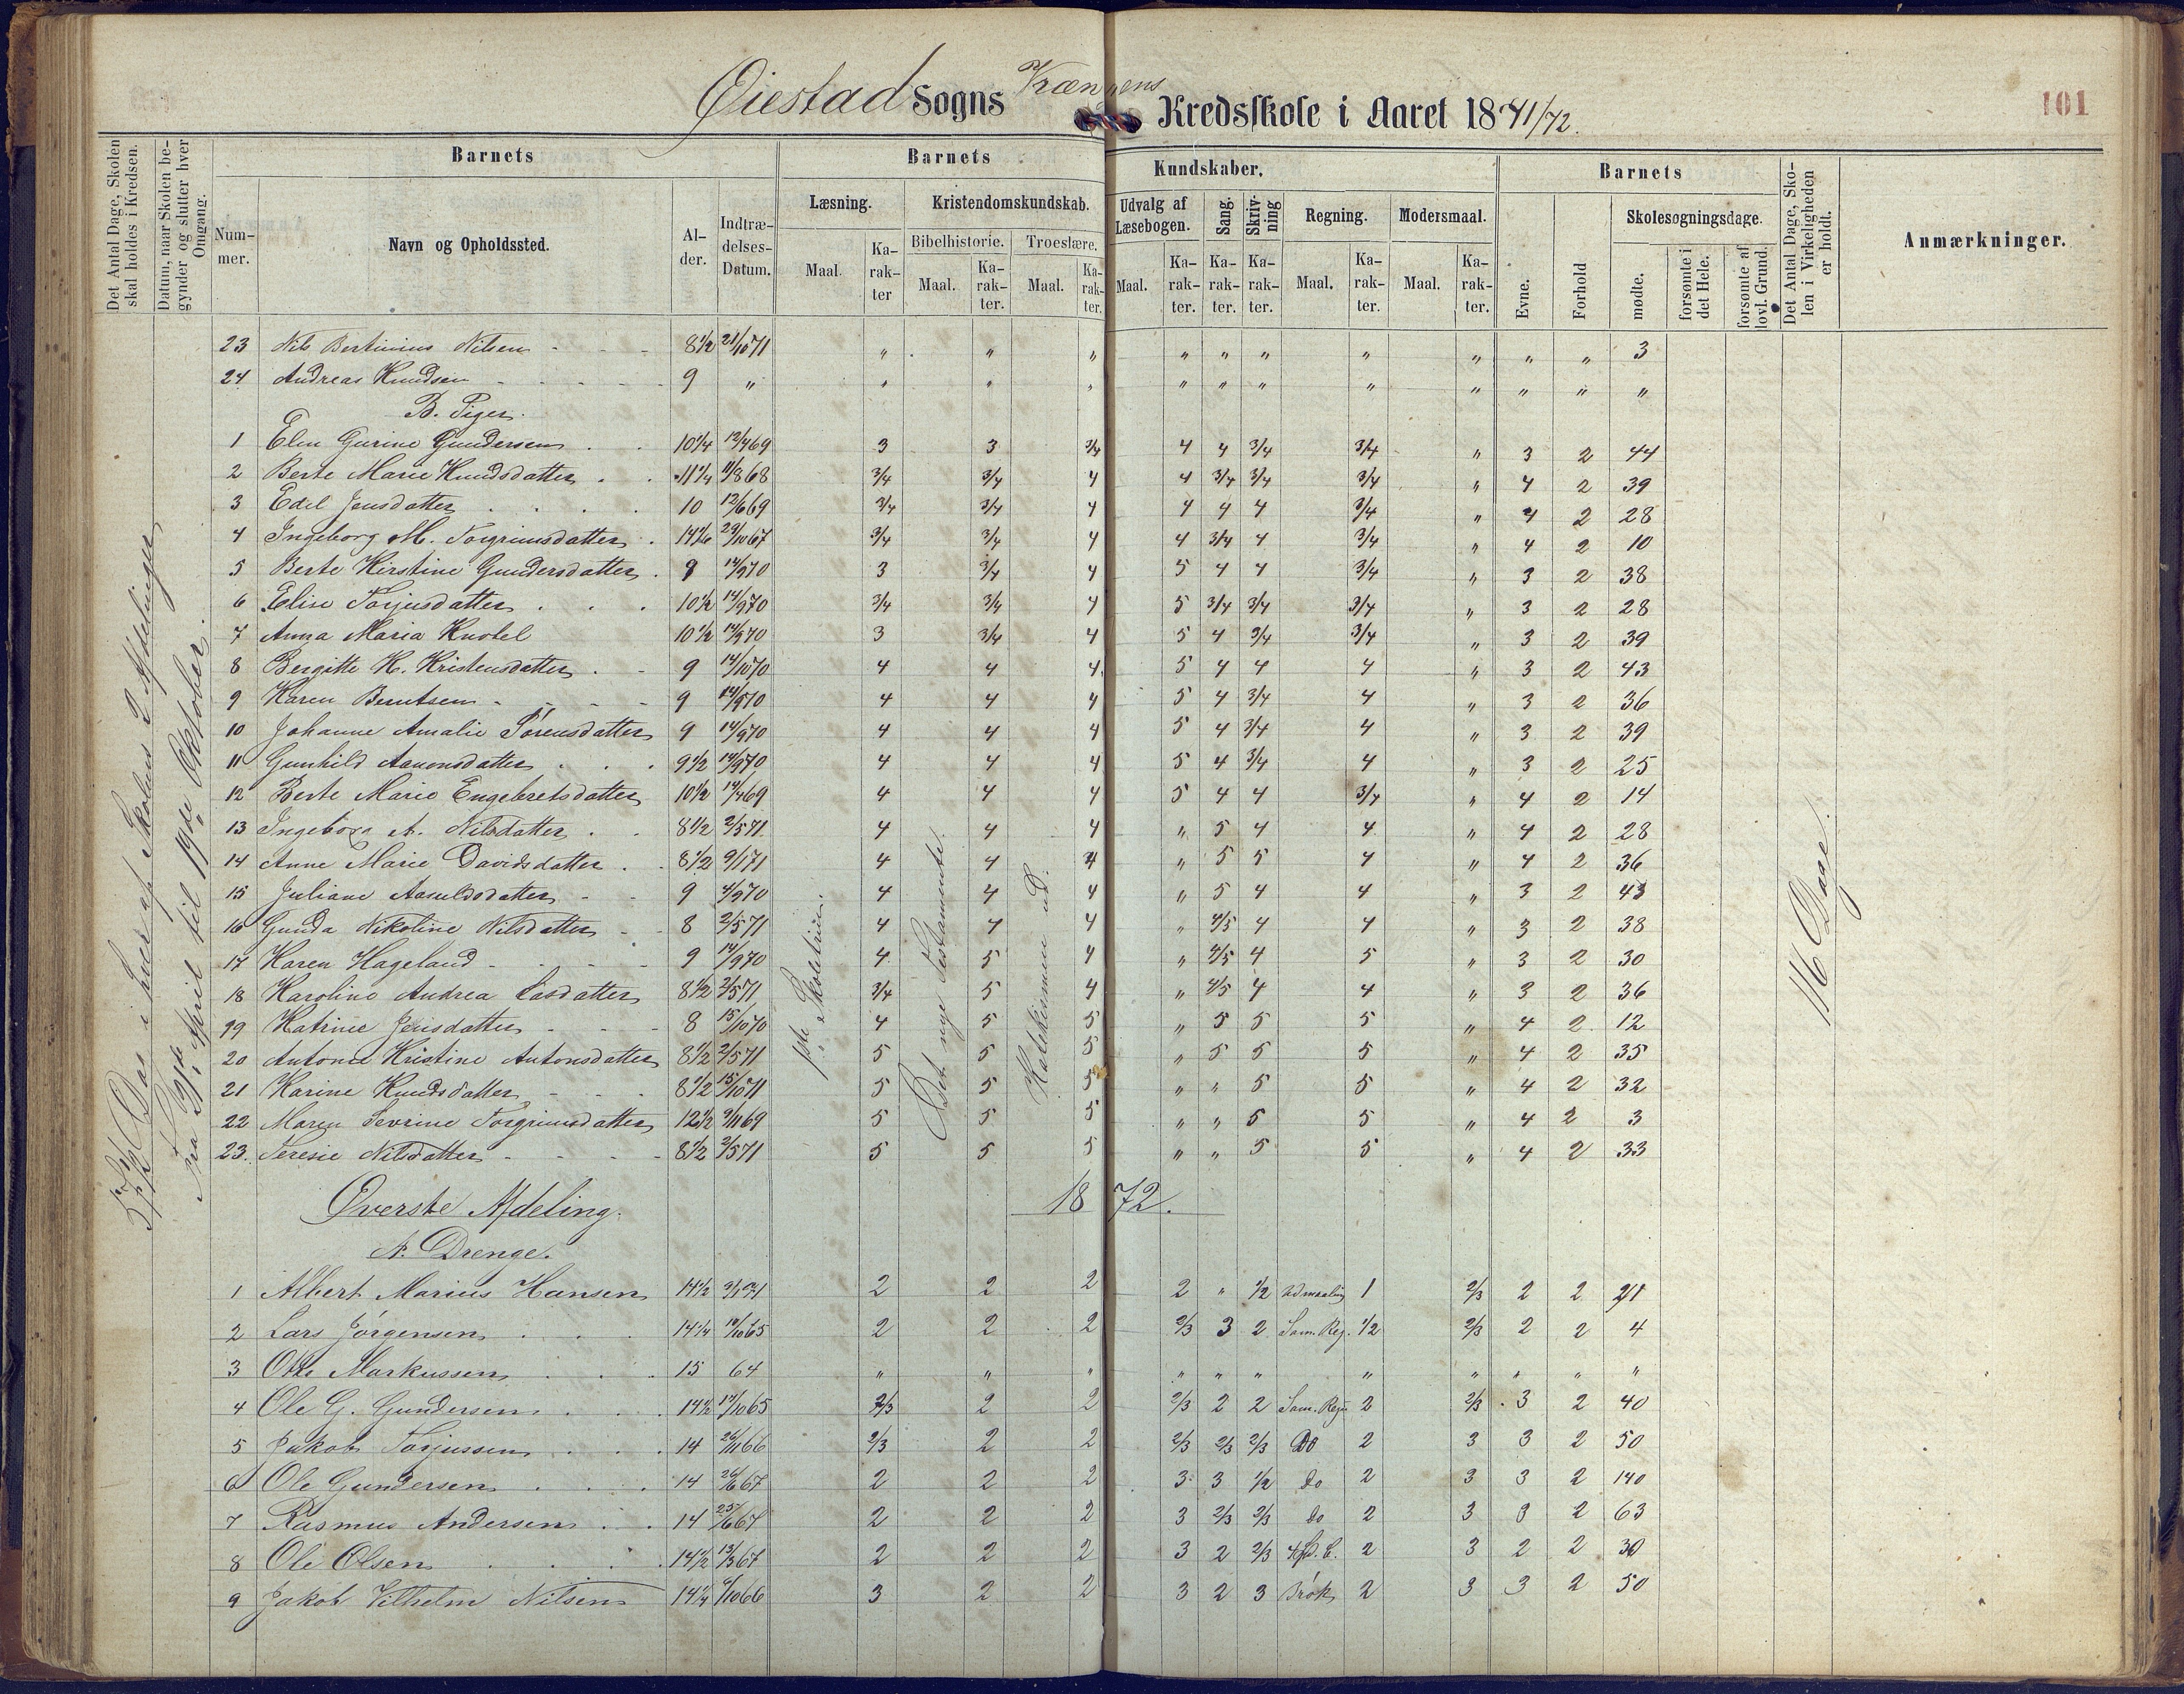 Øiestad Sogns Kredsskole i Aaret 1871/72.
101
Det Antal Dage, Skolen skal holdes i Kredsen.
Datum, naar Skolen begynder og slutter hver Omgang.
Barnets
Num-mer.
Navn og Opholdssted.
Al-der.
Indtræ-delses-Datum.
Barnets Kundskaber.
Læsning.
Maal.
Ka-rak-ter
Kristendomskundskab.
Bibelhistorie.
Maal.
Ka-rak-ter.
Troeslære.
Maal.
Ka-rak-ter.
Udvalg af Læsebogen.
Maal.
Ka-rak-ter.
Sang.
Ka-rak-ter.
Skriv-ning
Ka-rak-ter.
Regning.
Maal.
Ka-rak-ter.
Modersmaal.
Maal.
Ka-rak-ter.
Barnets
Evne.
Forhold
Skolesøgningsdage.
mødte.
forsømte i det Hele.
forsømte af lovl. Grund.
Det Antal Dage, Sko-len i Virkeligheden er holdt.
Anmærkninger.
23 Nils Bertinius Nilsen 8 1/2 21/10 71 " " " " " " " " " " 3
24 Andreas Knudsen 9 " " " " " " " " " " " "
B. Piger.
1 Elen Gurine Gundersen 10 1/4 12/4 69 3 3 3/4 4 4 3/4 3/4 " 3 2 44
2 Berte Marie Knudsdatter 11 1/4 11/8 68 3/4 3/4 4 4 3/4 3/4 3/4 " 4 2 39
3 Edel Jensdatter 10 12/6 69 3/4 3/4 4 4 4 4 3/4 " 4 2 28
4 Ingeborg M. Torgrimsdatter 14 1/6 29/10 67 3/4 3/4 4 4 3/4 4 3/4 " 4 2 10
5 Berte Kirstine Gundersdatter 9 14/9 70 3 3/4 4 5 4 4 3/4 " 3 2 38
6 Elise Torjusdatter 10 1/2 14/9 70 3/4 3/4 4 5 3/4 3/4 3/4 " 3 2 28
7 Anna Maria Knobel 10 1/2 14/9 70 3 3/4 4 5 4 3/4 3/4 " 3 2 39
8 Bergitte K. Kristensdatter 9 14/10 70 4 4 4 5 4 4 4 " 3 2 43
9 Karen Berntsen 9 14/9 70 4 4 4 5 4 3/4 4 " 3 2 36
10 Johanne Amalie Sørensdatter 9 14/9 70 4 4 4 5 4 3/4 4 " 3 2 39
11 Gunhild Aanonsdatter 9 1/2 14/9 70 4 4 4 5 4 3/4 4 " 3 2 25
12 Berte Marie Engebretsdatter 10 1/2 14/4 69 4 4 4 5 4 4 3/4 " 4 2 14
13 Ingeborg A. Nilsdatter 8 1/2 2/5 71 4 4 4 " 5 4 4 " 4 2 28
14 Anne Marie Davidsdatter 8 1/2 9/1 71 4 4 4 " 5 5 4 " 4 2 36
15 Juliane Aasuldsdatter 9 4/9 70 4 4 4 " 5 4 4 " 3 2 43
16 Gunda Nikoline Nilsdatter 8 2/5 71 4 4 4 " 4/5 4 4 " 3 2 38
17 Karen Hageland 9 14/9 70 4 5 4 " 4/5 4 5 " 3 2 30
18 Karoline Andrea Lasdatter 8 1/2 2/5 71 3/4 5 4 " 4/5 4 4 " 3 2 36
19 Katrine Jensdatter 8 15/10 70 4 5 5 " 5 5 5 " 4 2 12
20 Antonie Kristine Antonsdatter 8 1/2 2/5 71 5 5 5 " 5 5 5 " 4 2 35
21 Karine Knudsdatter 8 1/2 15/10 71 5 5 5 " " 5 5 " 4 2 32
22 Maren Sevrine Torgrimsdatter 12 1/2 9/11 69 5 5 5 " " 5 5 " 4 2 3
23 Teresie Nilsdatter 8 1/2 2/5 71 5 5 5 " " 5 5 " 4 2 33
Dage i hver af Skolens 2 Afdelinger
Fra April til 19de Oktober.
1ste Skoletrin.
Det nye Testamente
Katekismen ud.
116 Dage.
1872.
Øverste Afdeling.
A. Drenge.
1 Albert Marius Hansen 14 1/2 9/1 71 2 2 2 2 " 1/2 Udmaaling 1 2/3 2 2 21
2 Lars Jørgensen 14 1/4 18/10 65 2 2 2 2/3 3 2 Sam. Reg. 1/2 2/3 2 2 4
3 Otto Markussen 15 64 " " " " " " " " " " "
4 Ole G. Gundersen 14 1/2 17/10 65 2/3 2 2 2/3 2 2 Sam. Reg. 2 2/3 3 2 40
5 Jakob Torjussen 14 26/11 66 2/3 2 2 2/3 2/3 2/3 Do 2 3 3 2 50
6 Ole Gundersen 14 26/6 67 2 2 2 3 3 1/2 do 2 3 3 2 140
7 Rasmus Andersen 14 25/6 67 2 2 2 3 2/3 2/3 do 2 3 3 2 63
8 Ole Olsen 14 1/2 13/3 67 2 2 2 3 2 2/3 2 3 2 2 30
9 Jakob Vilhelm Nilsen 14 1/4 1/10 66 3 2 2 3 2 3 Brøk 2 3 3 2 50